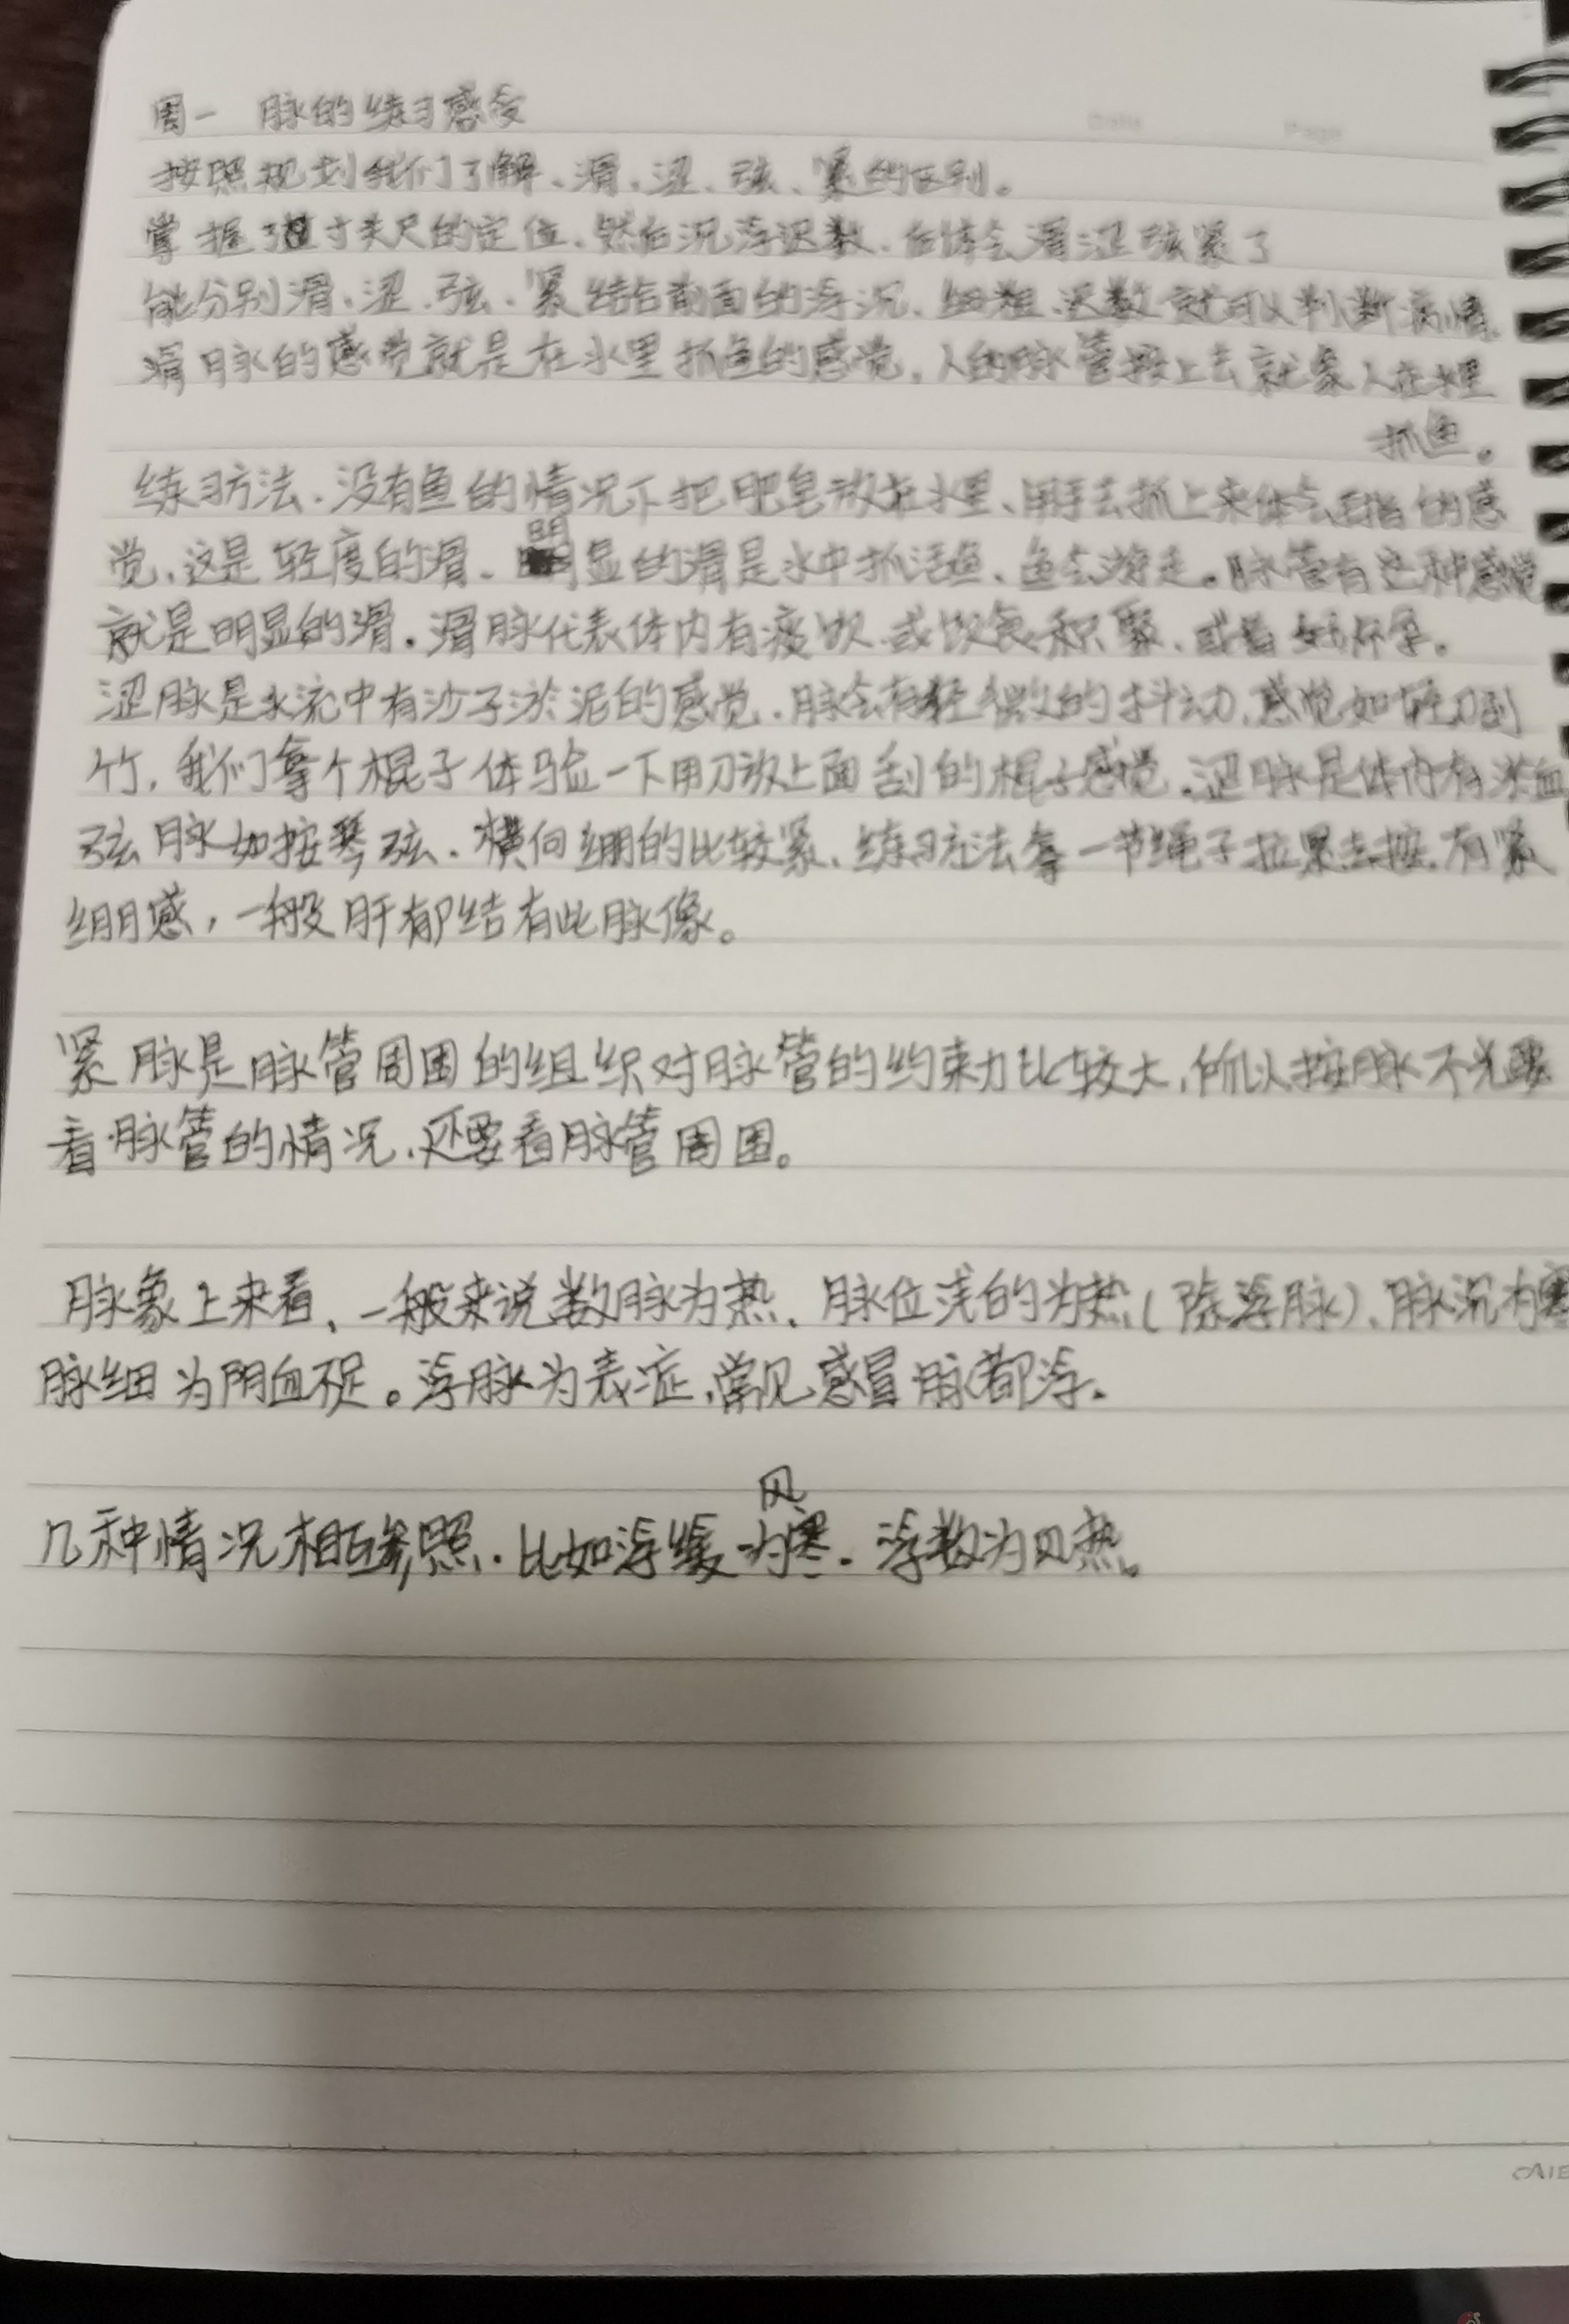 Date Page
周一 脉的练习感受
按照规划我们了解、滑、涩、弦、紧的区别。
掌握了寸关尺的定位、然后沉浮迟数、在体会滑涩弦紧了
能分别滑、涩、弦、紧结合前面的浮沉、细粗、迟数就可以判断病情。
滑脉的感觉就是在水里抓鱼的感觉，人的脉管按上去就象人在水里
抓鱼。
练习方法、没有鱼的情况下把肥皂放在水里、用手去抓上来体会的感
觉、这是轻度的滑、明显的滑是水中抓活鱼、鱼会游走。脉管有这种感觉
就是明显的滑。滑脉代表体内有痰饮、或饮食积聚、或者怀孕。
涩脉是水流中有沙子淤泥的感觉、脉会有轻微的抖动、感觉如轻刀刮
竹，我们拿个棍子体验一下用刀放上面刮的棍子感觉。涩脉是体内有淤血
弦脉如按琴弦、横向绷的比较紧、练习方法拿一节绳子拉紧去按、有紧
绷感，一般肝郁结有此脉像。
紧脉是脉管周围的组织对脉管的约束力比较大，所以按脉不光要
看脉管的情况、还要看脉管周围。
脉象上来看、一般来说数脉为热、脉位浅的为热（除浮脉）、脉沉为寒
脉细为阴血不足。浮脉为表症、常见感冒脉都浮。
风
几种情况相互参照．比如浮缓为寒．浮数为风热。